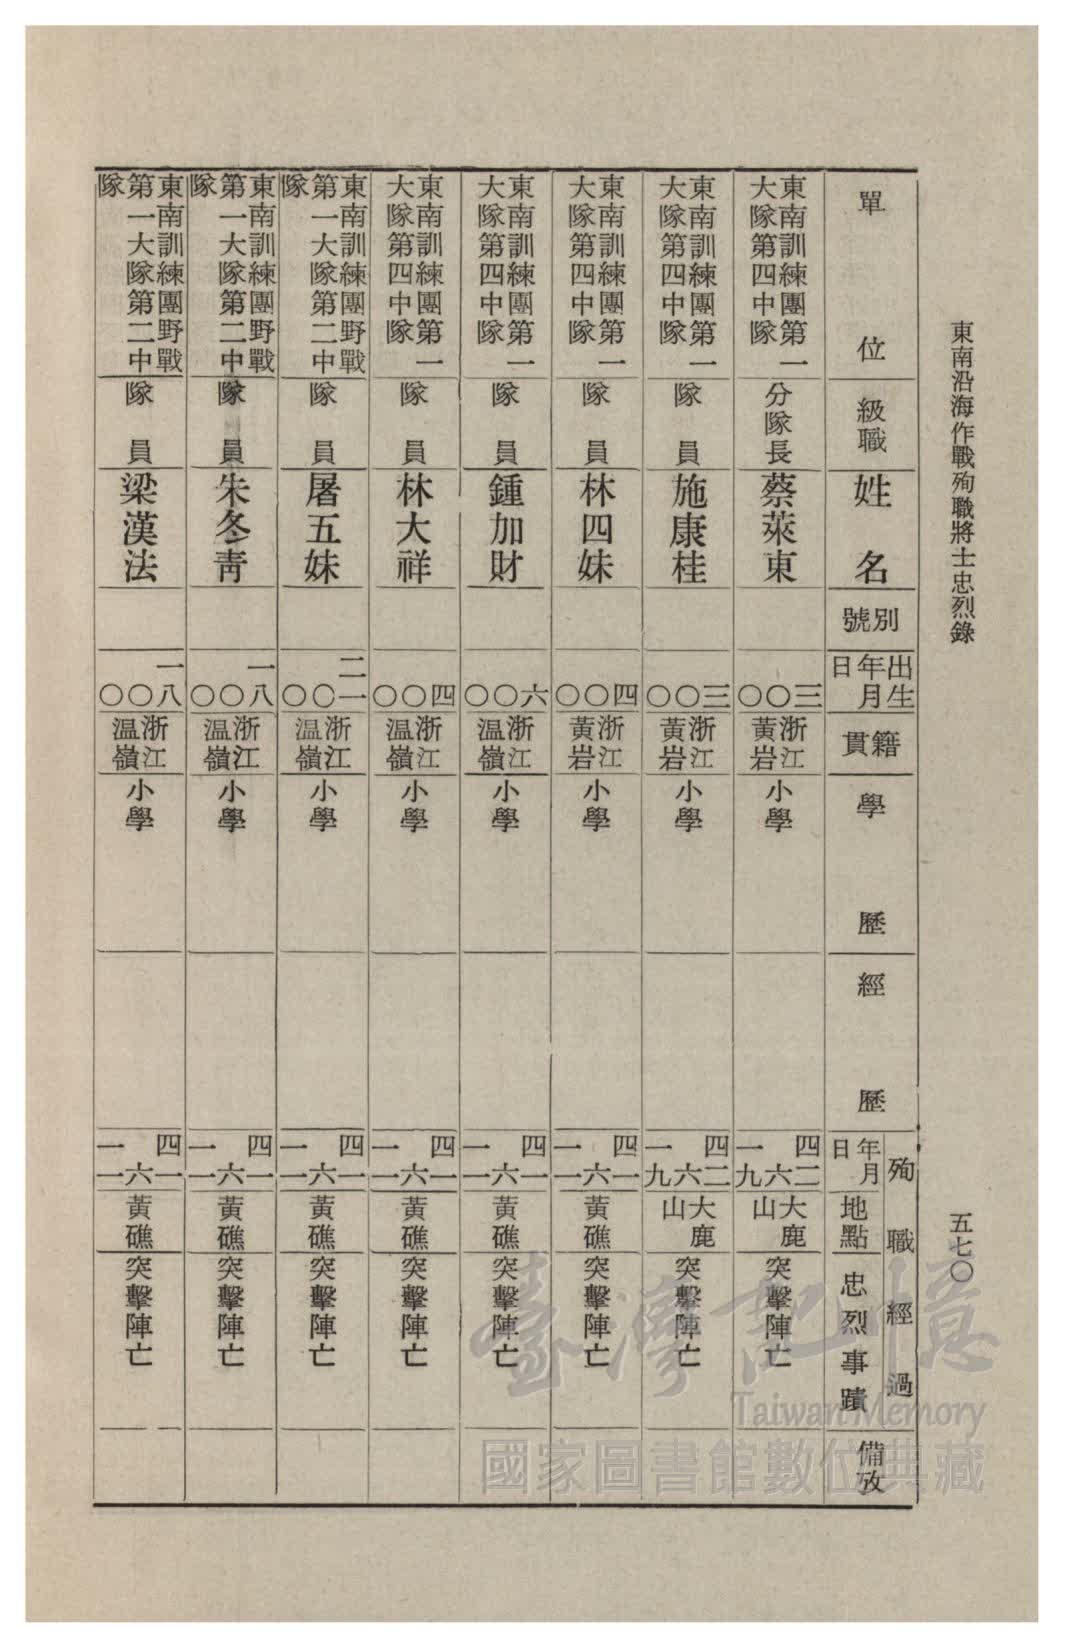 東南沿海作戰殉職將士忠烈錄
五七〇
單位
級職
姓名
別號
出生年月日
籍貫
學歷
經歷
殉職經過
年月日
地點
忠烈事蹟
備攷
東南訓練團第一
大隊第四中隊
分隊長
蔡萊東
三〇〇
浙江
黃岩
小學
四一
二六九
大鹿
山
突擊陣亡
東南訓練團第一
大隊第四中隊
隊員
施康桂
三〇〇
浙江
黃岩
小學
四一
二六九
大鹿
山
突擊陣亡
東南訓練團第一
大隊第四中隊
隊員
林四妹
四〇〇
浙江
黃岩
小學
四一
一六一
黃礁
突擊陣亡
東南訓練團第一
大隊第四中隊
隊員
鍾加財
六〇〇
浙江
溫嶺
小學
四一
一六一
黃礁
突擊陣亡
東南訓練團第一
大隊第四中隊
隊員
林大祥
四〇〇
浙江
溫嶺
小學
四一
一六一
黃礁
突擊陣亡
東南訓練團野戰
第一大隊第二中
隊
隊員
屠五妹
二一〇〇
浙江
溫嶺
小學
四一
一六一
黃礁
突擊陣亡
東南訓練團野戰
第一大隊第二中
隊
隊員
朱冬靑
一八〇〇
浙江
溫嶺
小學
四一
一六一
黃礁
突擊陣亡
東南訓練團野戰
第一大隊第二中
隊
隊員
梁漢法
一八〇〇
浙江
溫嶺
小學
四一
一六一
黃礁
突擊陣亡
臺灣記憶
Taiwan Memory
國家圖書館數位典藏